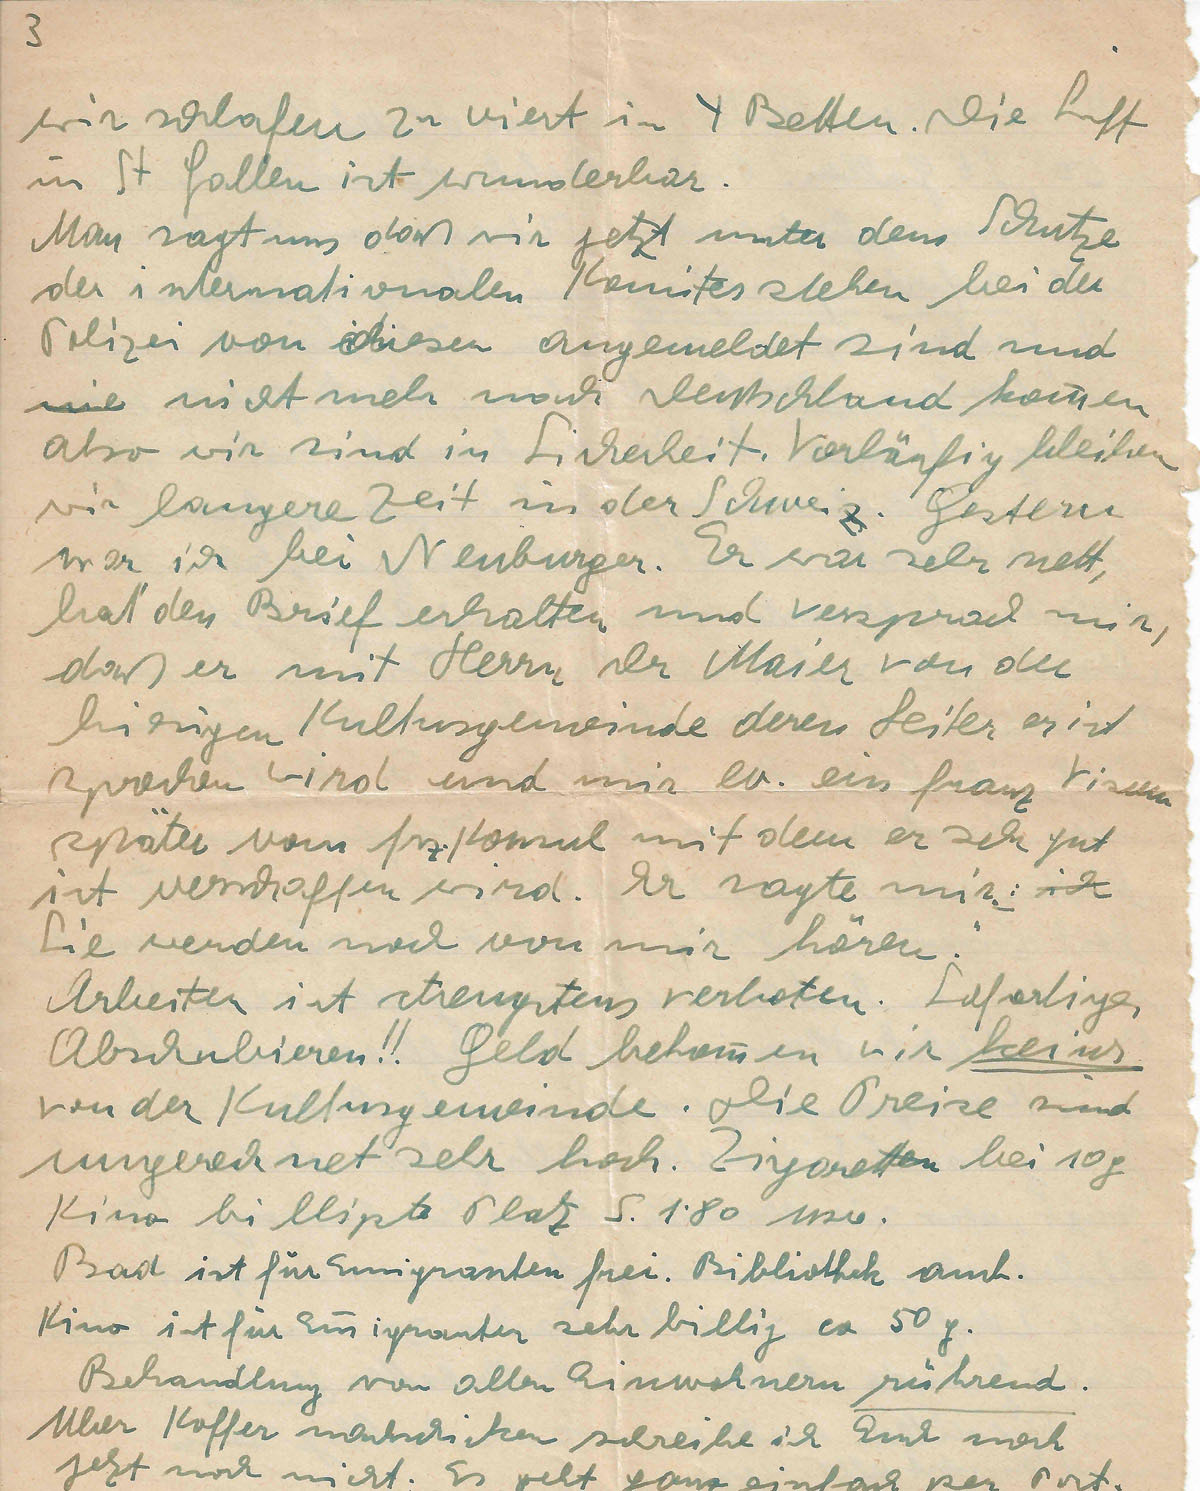 3
wir schlafen zu viert in 4 Betten. Die Luft
in St Gallen ist wunderbar.
Man sagt uns daß wir jetzt unter dem Schutze
der internationalen Komites stehen bei der
Polizei von diesen angemeldet sind und
nie nicht mehr nach Deutschland kom̄en
also wir sind in Sicherheit. Vorläufig bleiben
wir längere Zeit in der Schweiz. Gestern
war ich bei Neuburger. Er war sehr nett,
hat den Brief erhalten und versprach mir,
daß er mit Herrn Dr Maier von der
hiesigen Kultusgemeinde deren Leiter er ist
sprechen wird und mir ev. ein franz Visum
später vom frz. Konsul mit dem er sehr gut
ist verschaffen wird. Er sagte mir: ich
Sie werden noch von mir hören."
Arbeiten ist strengstens verboten. Sofortiges
Abschubieren!! Geld bekom̄en wir keines
von der Kultusgemeinde. Die Preise sind
umgerechnet sehr hoch. Zigaretten bei 10g
Kino billigste Platz S. 1·80 usw.
Bad ist für Emigranten frei. Bibliothek auch.
Kino ist für Em̄igranten sehr billig ca 50 g.
Behandlung von allen Einwohnern rührend.
Über Koffer nachschicken schreibe ich Euch noch
jetzt noch nicht. Es geht ganz einfach per Post.